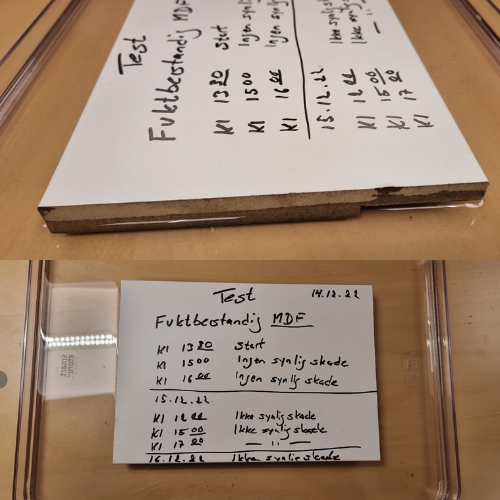 Test
Fuktbestandig MDF
Kl 13 20 Start
Kl 15 00 Ingen synlig
Kl 16 00 Ingen synlig
15.12.22
Kl 12 00 Ikke synlig
Kl 15 00 Ikke syn
Kl 17 00 — ıı
Kl
Test 14.12.22
Fuktbestandig MDF
Kl 13 20 Start
Kl 15 00 Ingen synlig skade
Kl 16 00 Ingen synlig skade
15.12.22
Kl 12 00 Ikke synlig skade
Kl 15 00 Ikke synlig skade
Kl 17 00 — ıı —
16.12.22 Ikke synlig skade